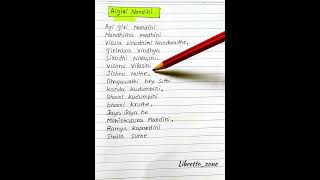 Aigiri Nandini
Ayi giri Nandini
Nandhitha Medhini
Viswa Vinodhini Nandanuthe,
Girivara Vindhya
Sirodhi Nivasini
Vishnu Vilasini
Jishnu Nuthe,
Bhagawathi hey Sithi
Kanda Kudumbini,
Bhoori Kudumbini
bhoori Kruthe,
Jaya Jaya he
Mahishasura Mardini,
Ramya Kapardini
Shaila Suthe
Libretto_zone